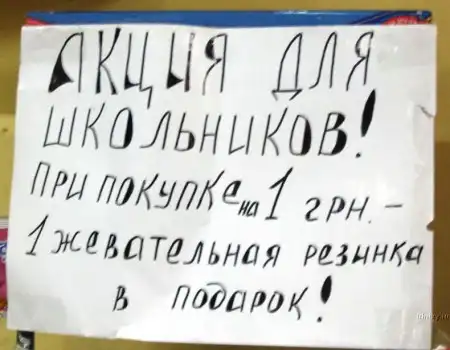 АКЦИЯ ДЛЯ
ШКОЛЬНИКОВ!
ПРИ ПОКУПКЕ НА 1 ГРН. –
1 жевательная резинка
в подарок!